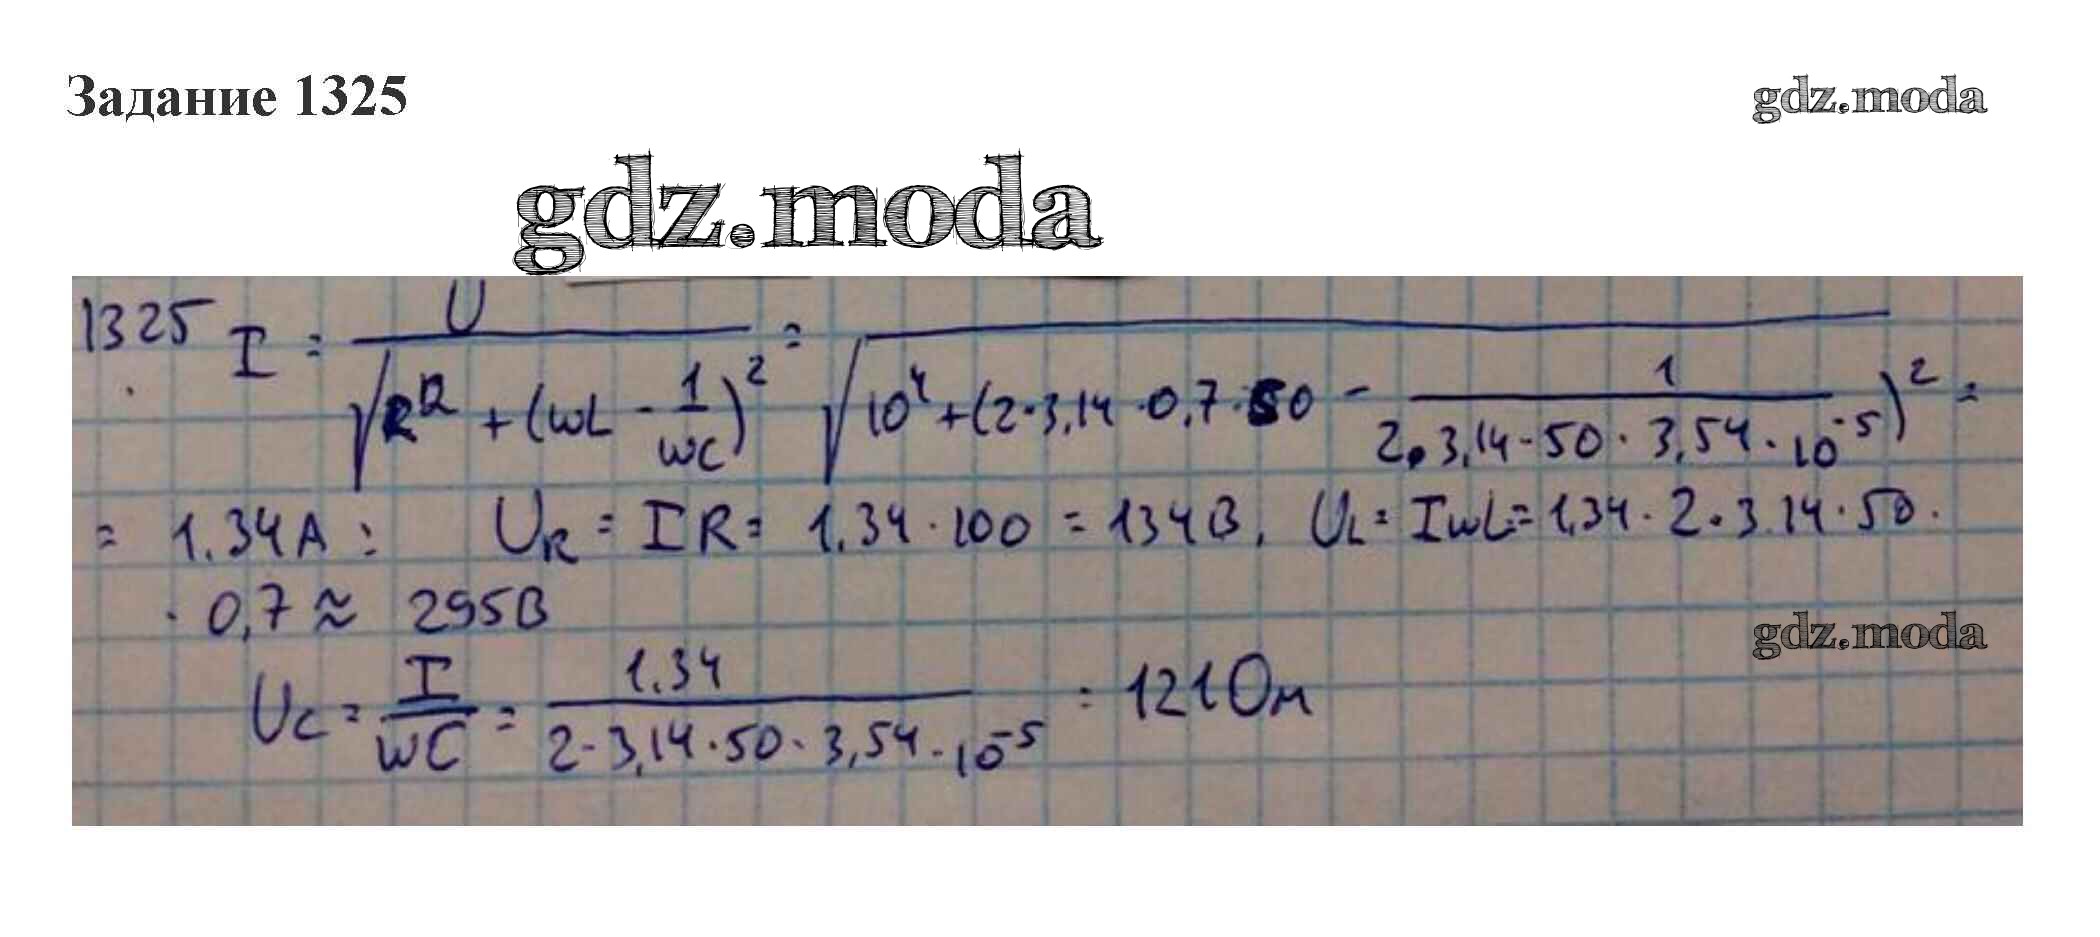 Задание 1325
gdz.moda
gdz.moda
1325 I = U / √(R² + (wL - 1/wC)²) = √(10⁴ + (2·3,14·0,7·50 - 1/(2·3,14·50·3,54·10⁻⁵))²) =
= 1.34A; U_R = IR = 1.34·100 = 134В, U_L = IwL = 1,34·2·3.14·50·
·0,7 ≈ 295В
gdz.moda
U_C = I/wC = 1.34/(2·3,14·50·3,54·10⁻⁵) = 121Ом